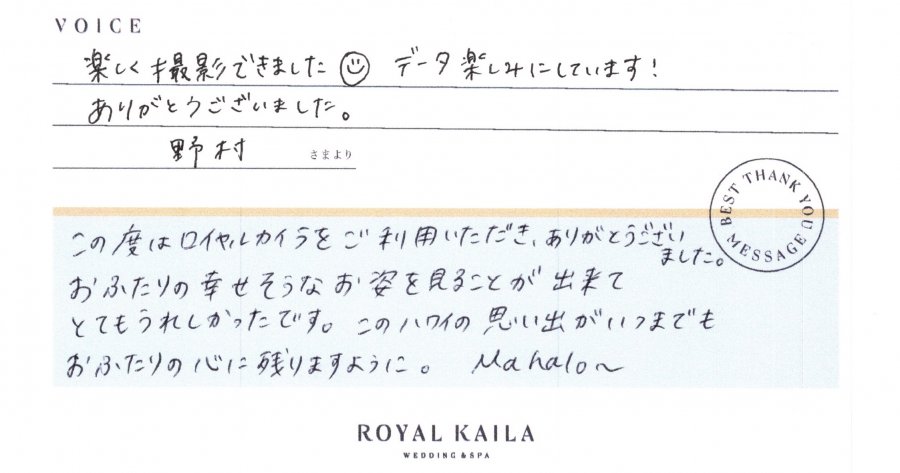 VOICE
楽しく撮影できました☺ データ楽しみにしています!
ありがとうございました。
野村 さまより
BEST THANK YOU MESSAGE
この度はロイヤルカイラをご利用いただき、ありがとうござい
ました。
おふたりの幸せそうなお姿を見ることが出来て
とてもうれしかったです。このハワイの思い出がいつまでも
おふたりの心に残りますように。 Mahalo〜
ROYAL KAILA
WEDDING & SPA